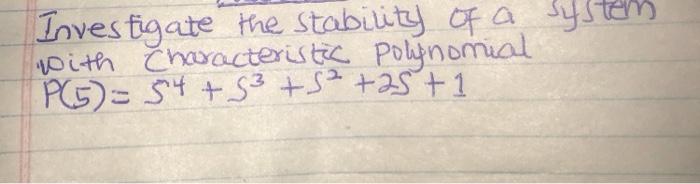 Investigate the stability of a system
with Characteristic polynomial
P(S) = S⁴ + S³ + S² + 2S + 1